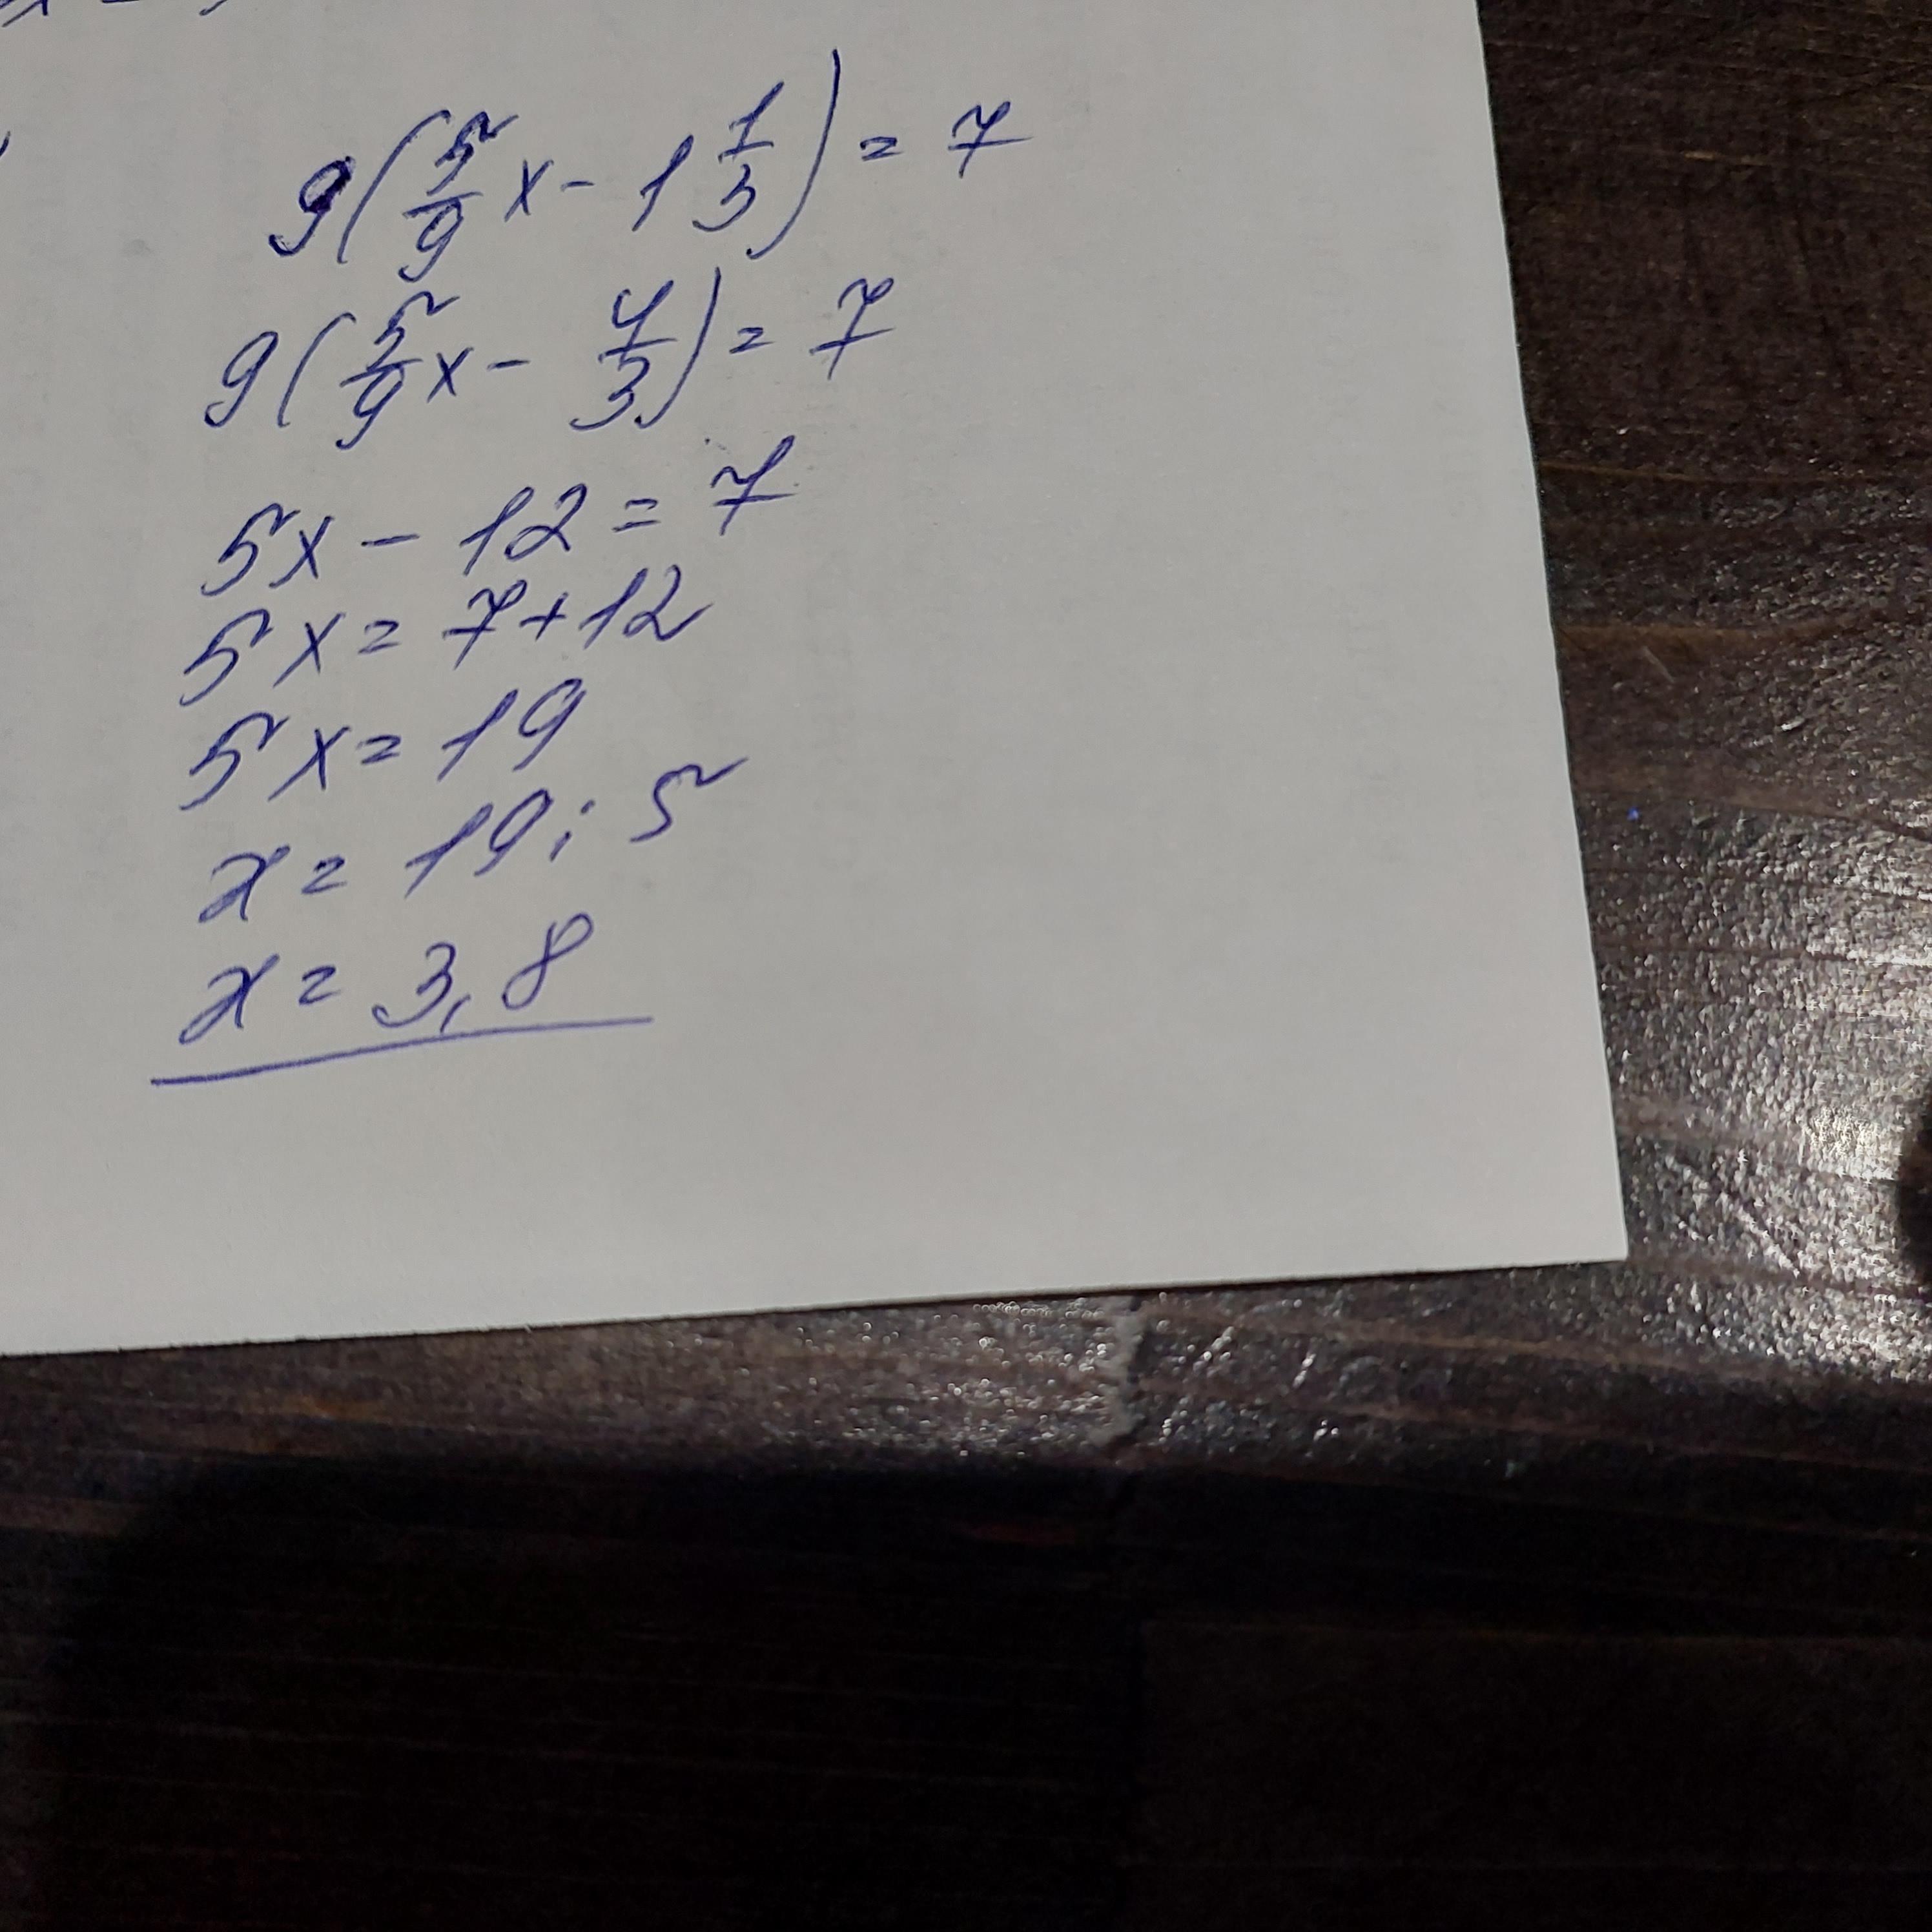 9(5/9 x - 1 1/3) = 7
9(5/9 x - 4/3) = 7
5x - 12 = 7
5x = 7 + 12
5x = 19
x = 19 : 5
x = 3,8